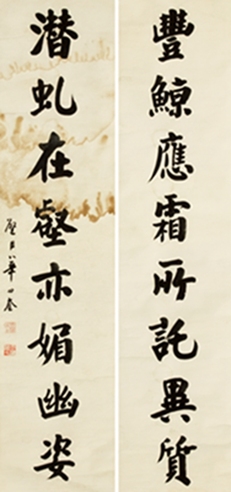 豐鯨應霜所託異質
潛虬在壑亦媚幽姿